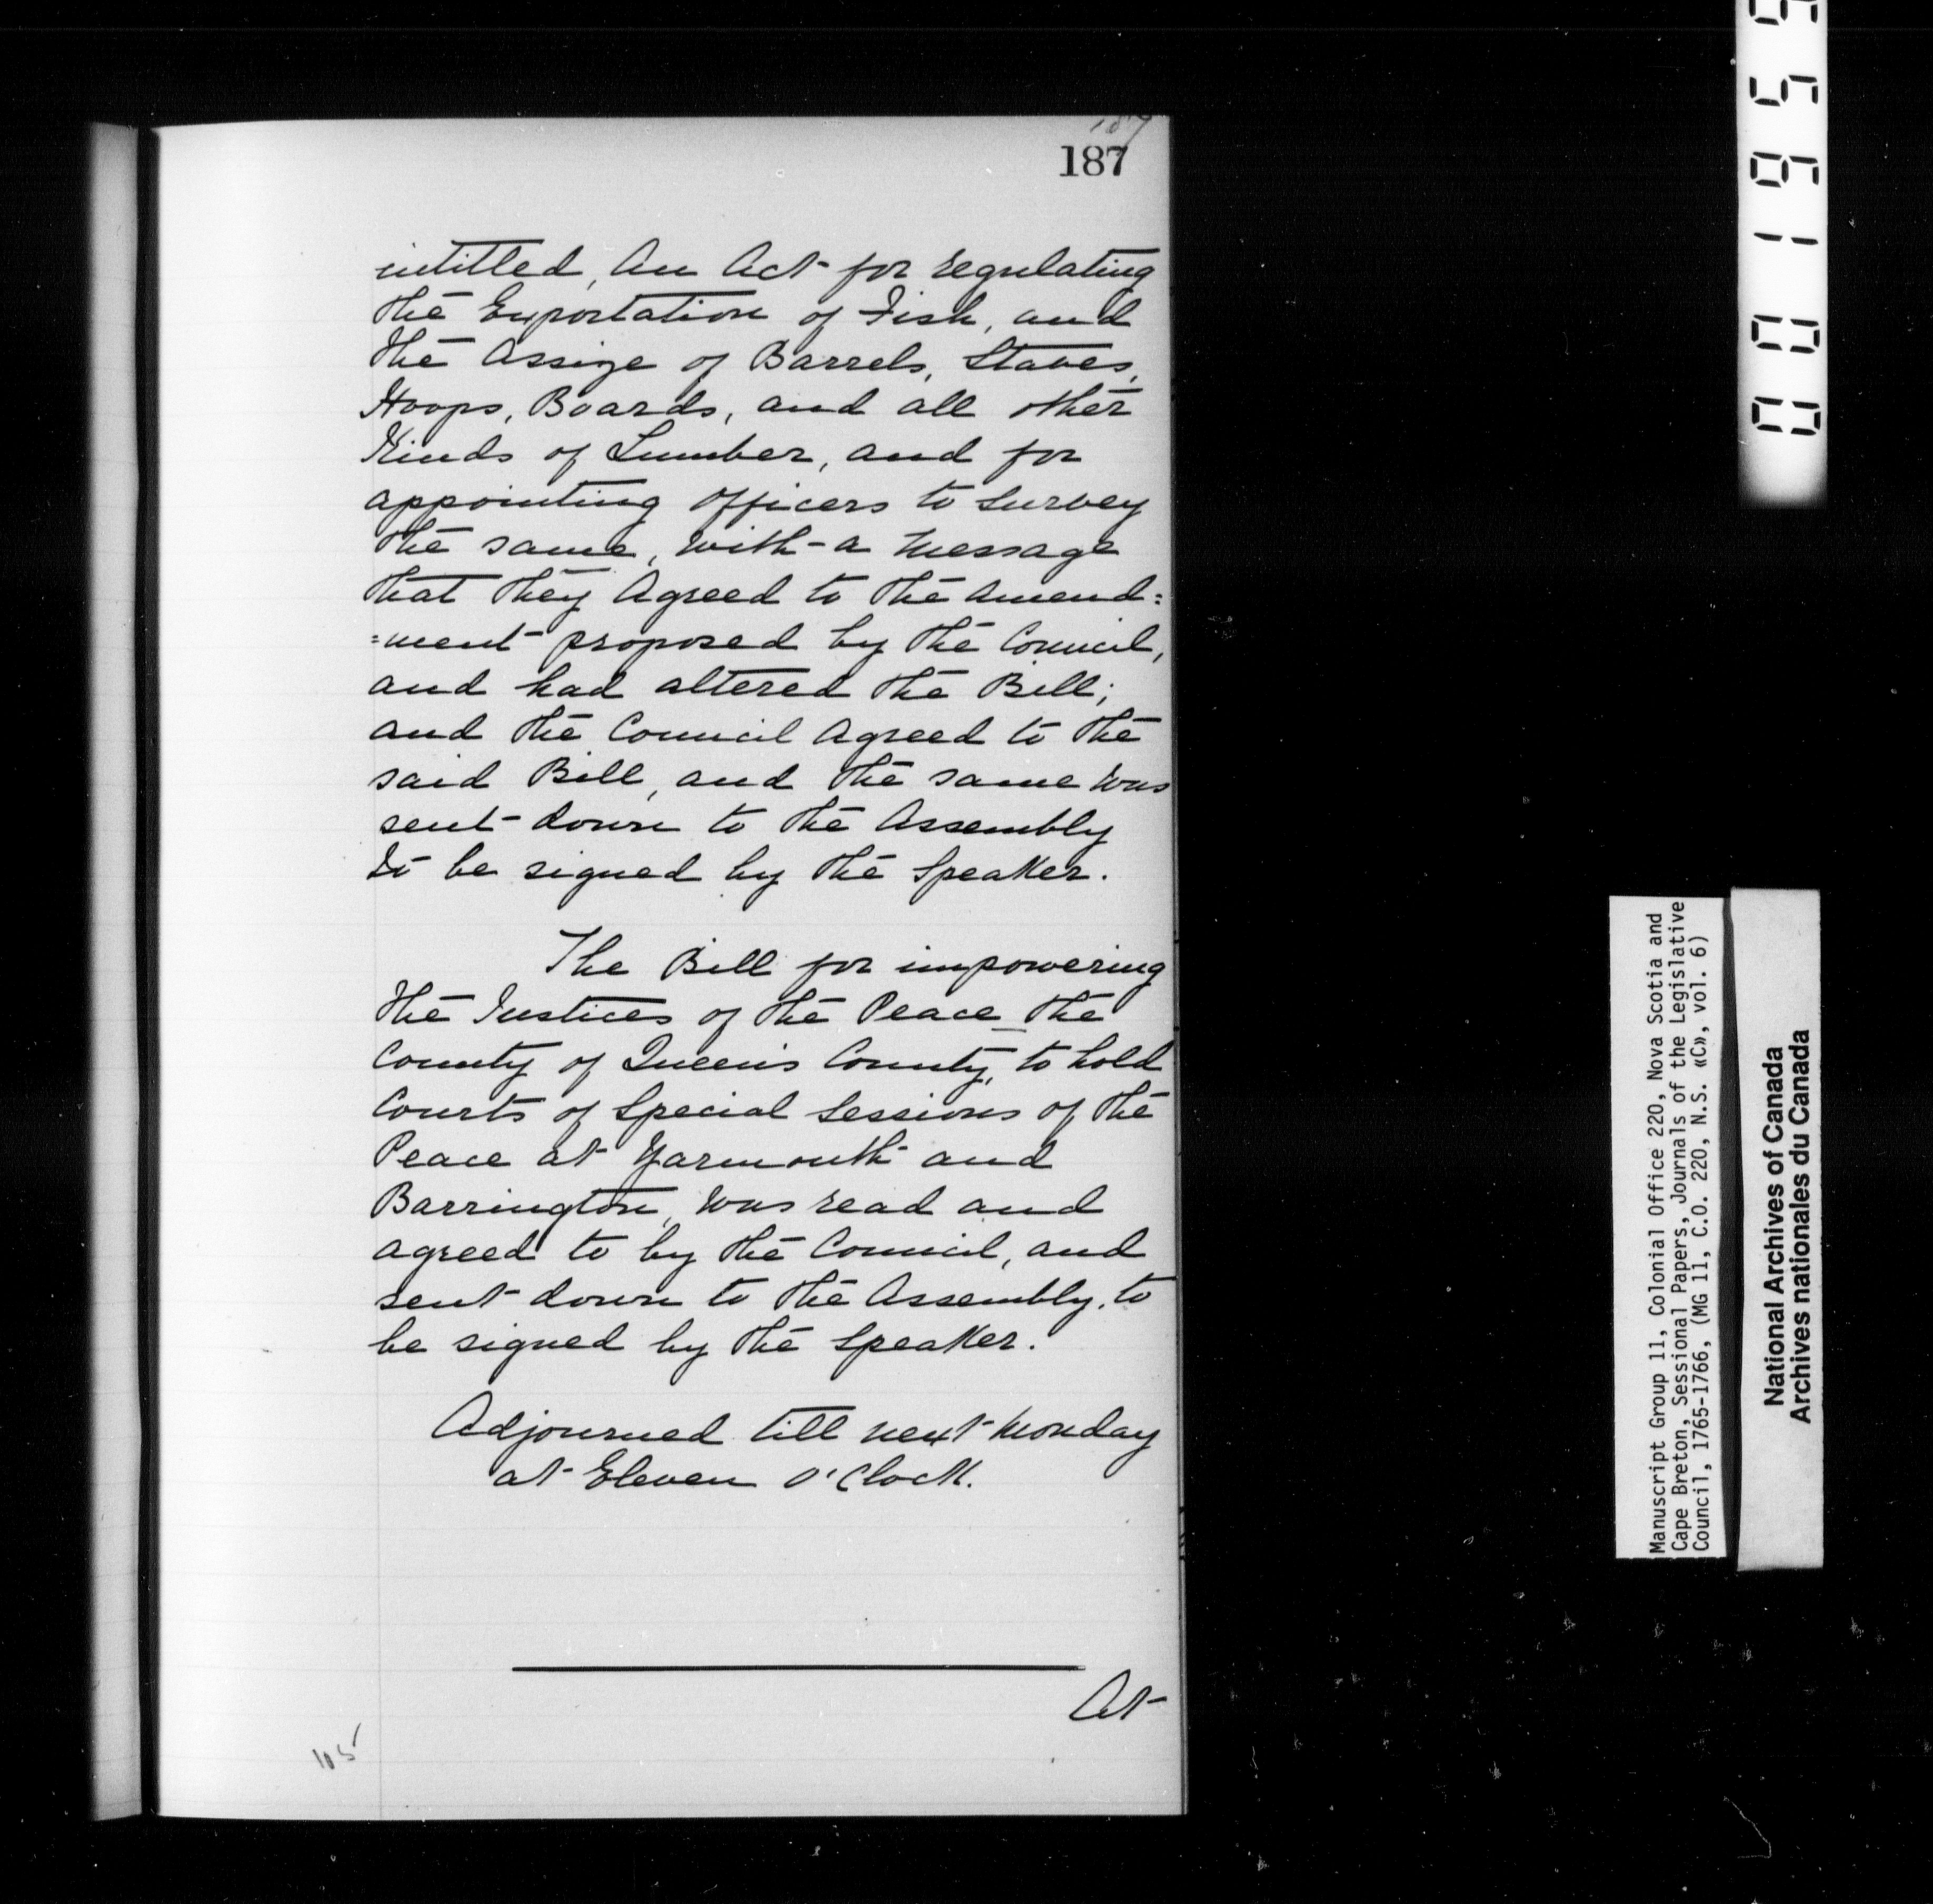 187
187
intitled, An Act for regulating
the Exportation of Fish, and
the Assize of Barrels, Staves,
Hoops, Boards, and all other
Kinds of Lumber, and for
appointing Officers to Survey
the same, with a Message
that they Agreed to the Amend=
=ment proposed by the Council,
and had altered the Bill;
and the Council Agreed to the
said Bill, and the same was
sent down to the Assembly
to be signed by the Speaker.
The Bill for impowering
the Justices of the Peace the
County of Queen's County, to hold
Courts of Special Sessions of the
Peace at Yarmouth and
Barrington, was read and
agreed to by the Council, and
sent down to the Assembly, to
be signed by the Speaker.
Adjourned till next Monday
at Eleven O'Clock.
At
105
001955
Manuscript Group 11, Colonial Office 220, Nova Scotia and
Cape Breton, Sessional Papers, Journals of the Legislative
Council, 1765-1766, (MG 11, C.O. 220, N.S. «C», vol. 6)
National Archives of Canada
Archives nationales du Canada